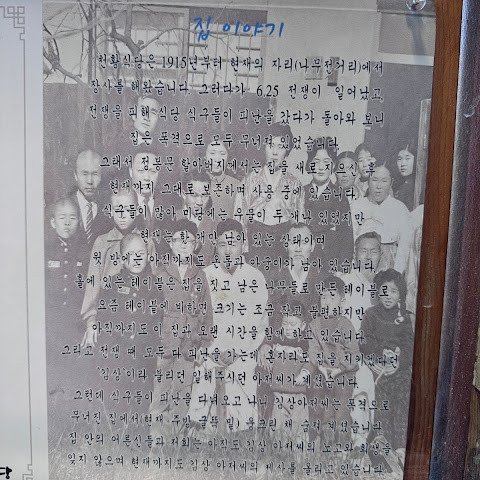 집 이야기
천황식당은 1915년부터 현재의 자리(나무전거리)에서
장사를 해왔습니다. 그러다가 6.25 전쟁이 일어났고,
전쟁을 피해 식당 식구들이 피난을 갔다가 돌아와 보니
집은 폭격으로 모두 무너져 있었습니다.
그래서 정봉문 할아버지께서는 집을 새로 지으신 후
현재까지 그대로 보존하며 사용 중에 있습니다.
식구들이 많아 마당에는 우물이 두 개나 있었지만
현재는 한 개만 남아 있는 상태이며
윗 방에는 아직까지도 온돌과 아궁이가 남아 있습니다.
홀에 있는 테이블은 집을 짓고 남은 나무들로 만든 테이블로
요즘 테이블에 비하면 크기는 조금 작고 불편하지만
아직까지도 이 집과 오랜 시간을 함께 하고 있습니다.
그리고 전쟁 때 모두 다 피난을 가는데 혼자라도 집을 지키겠다던
'김상'이라 불리던 일해주시던 아저씨가 계셨습니다.
그런데 식구들이 피난을 다녀오고 나니 김상아저씨는 폭격으로
무너진 집에서(현재 주방 굴뚝 밑) 웅크린 채 숨져 계셨습니다.
집 안의 어른신들과 저희는 아직도 김상 아저씨의 노고와 희생을
잊지 않으며 현재까지도 김상 아저씨의 제사를 올리고 있습니다.
당